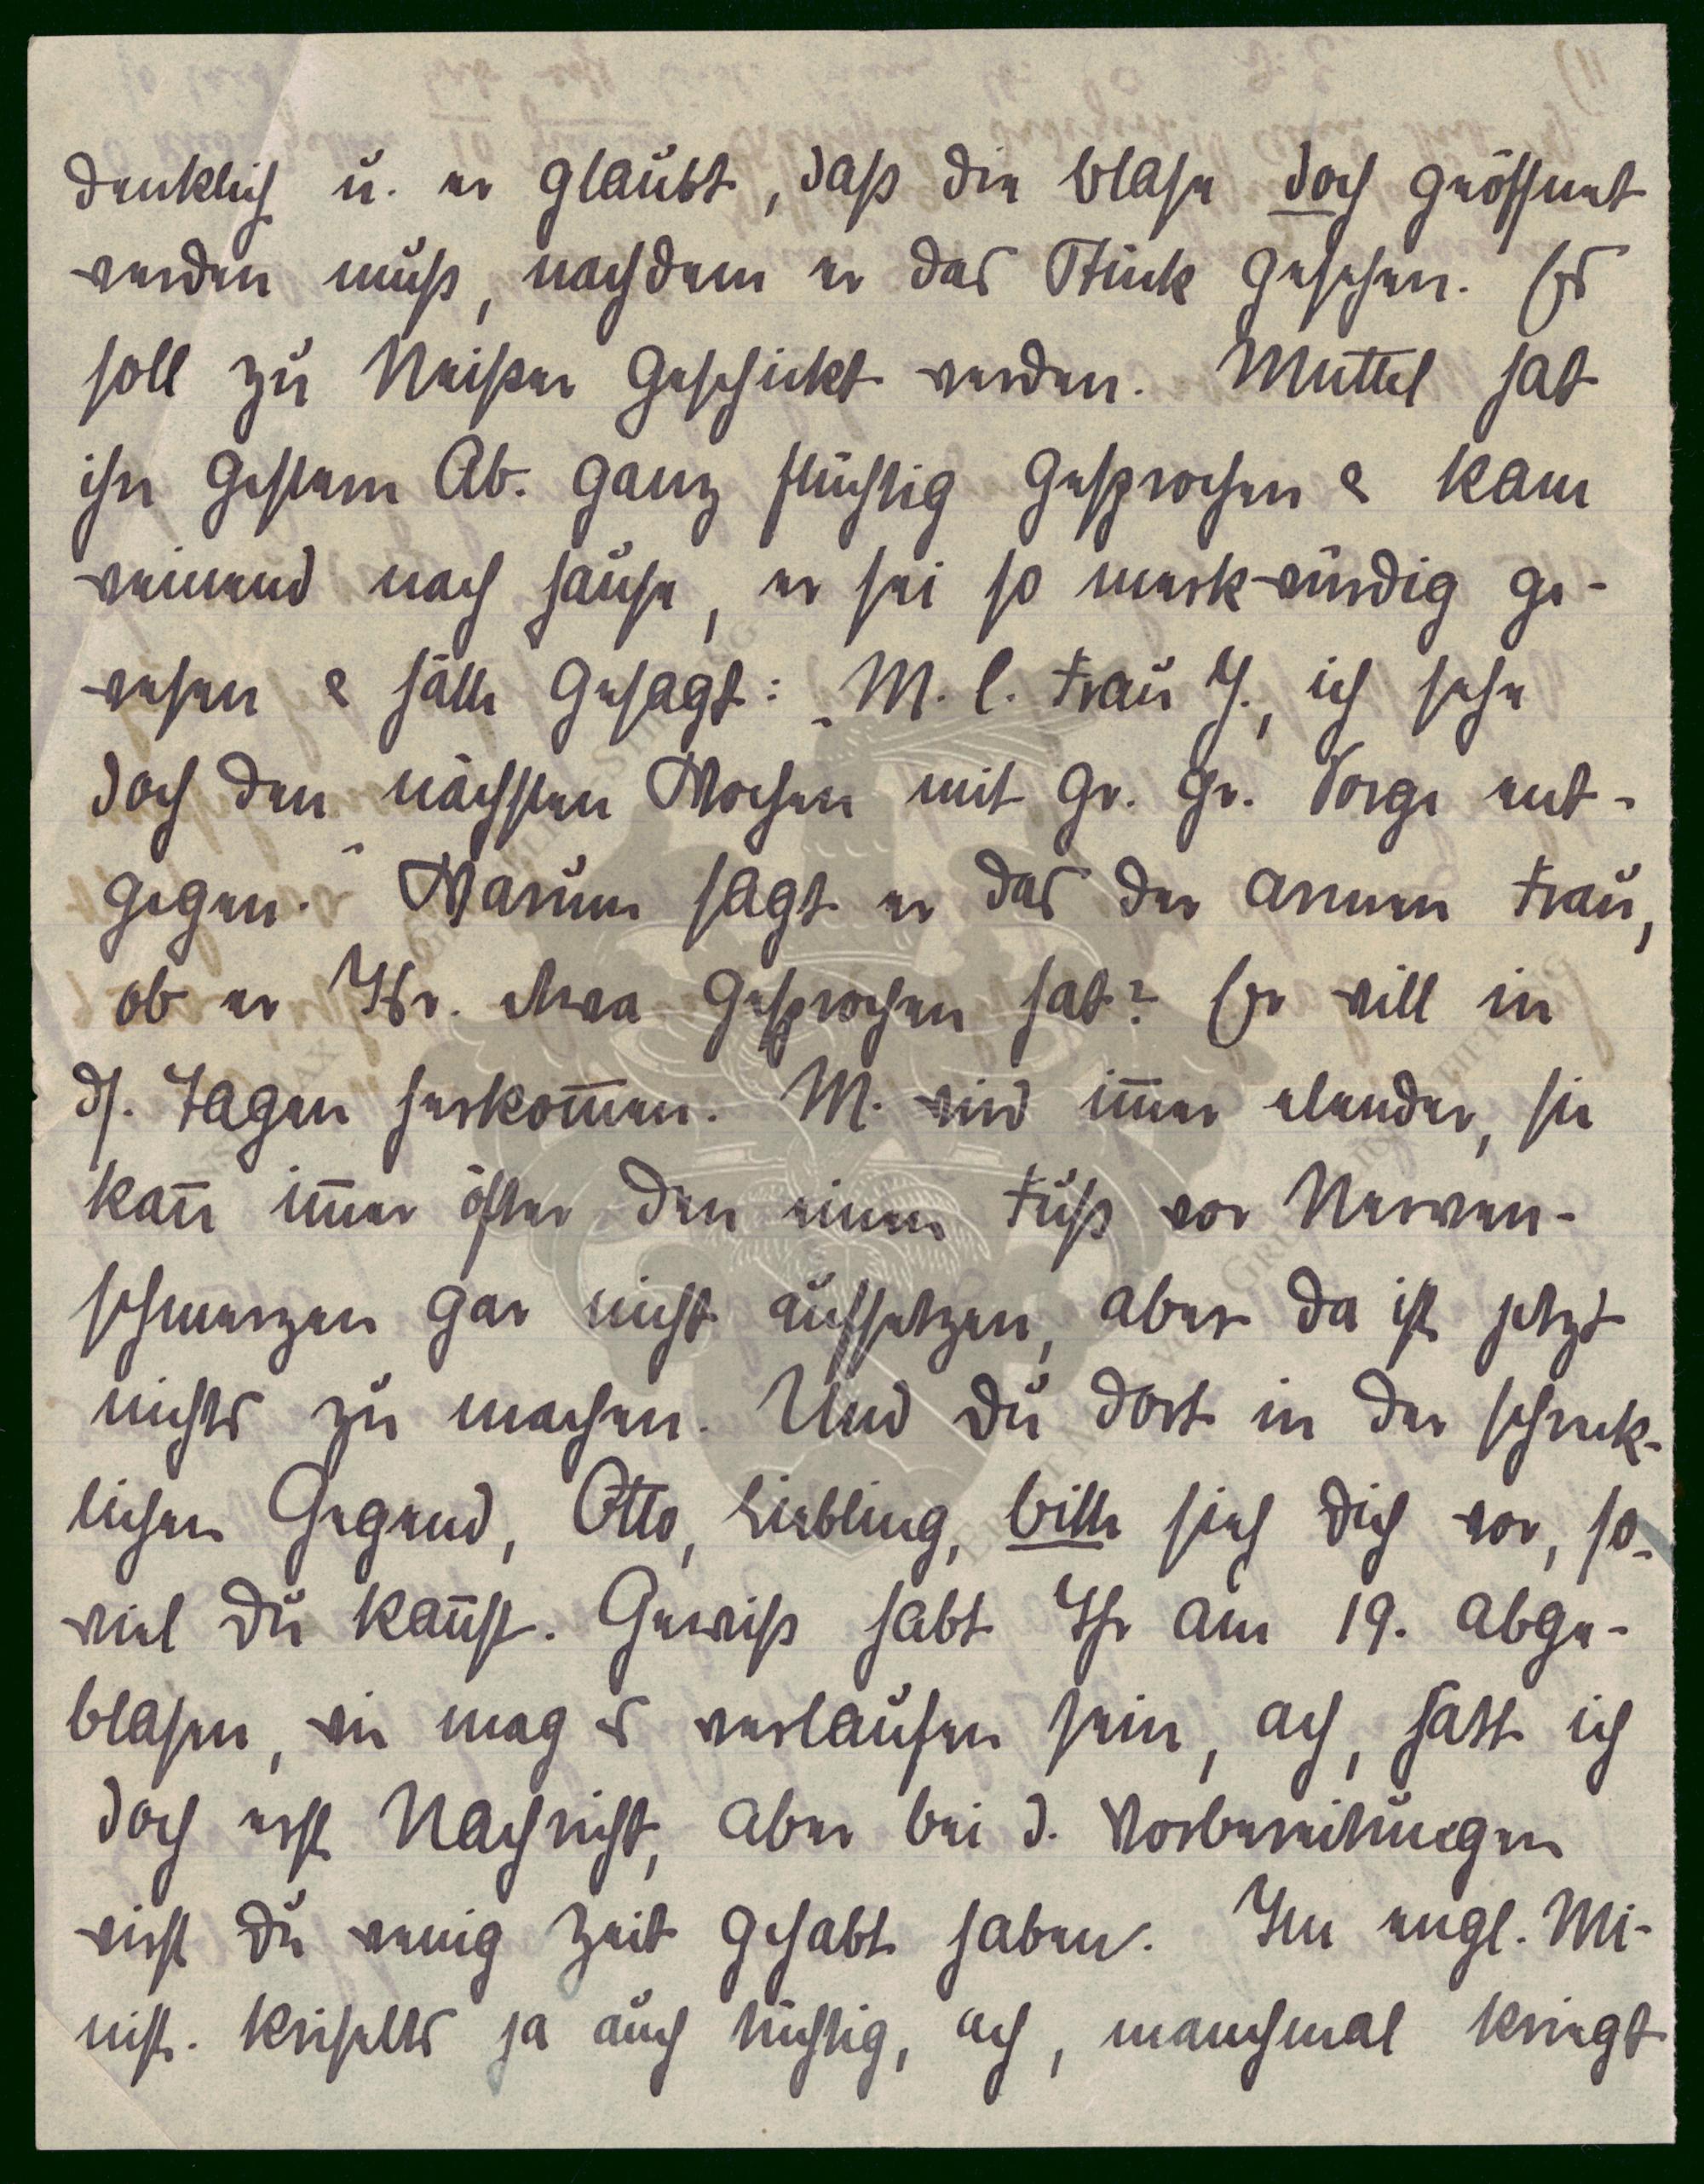 denklich u. er glaubt, daß die Blase doch geöffnet
werden muß, nachdem er das Stück gesehen. Es
soll zu Neißer geschickt werden. Muttel hat
ihn gestern Ab. ganz flüchtig gesprochen & kam
weinend nach Hause, er sei so merkwürdig ge-
wesen & hätte gesagt: „M. l. Frau J., ich sehe
doch den nächsten Wochen mit gr. gr. Sorge ent-
gegen." Warum sagt er das der armen Frau,
ob er etwa gesprochen hat? Er will in
ds. Tagen herkom̅en. M. wird im̅er elender, sie
kan̅ im̅er öfter den einen Fuß vor Nerven-
schmerzen gar nicht aufsetzen, aber da ist jetzt
nichts zu machen. Und Du dort in der schreck-
lichen Gegend, Otto, Liebling, bitte sieh Dich vor, so-
viel Du kan̅st. Gewiß habt Ihr am 19. abge-
blasen, wie mag es verlaufen sein, ach, hätt ich
doch erst Nachricht, aber bei d. Vorbereitungen
wirst Du wenig Zeit gehabt haben. Im engl. Mi-
nist. kriselts ja auch tüchtig, ach, manchmal kriegt